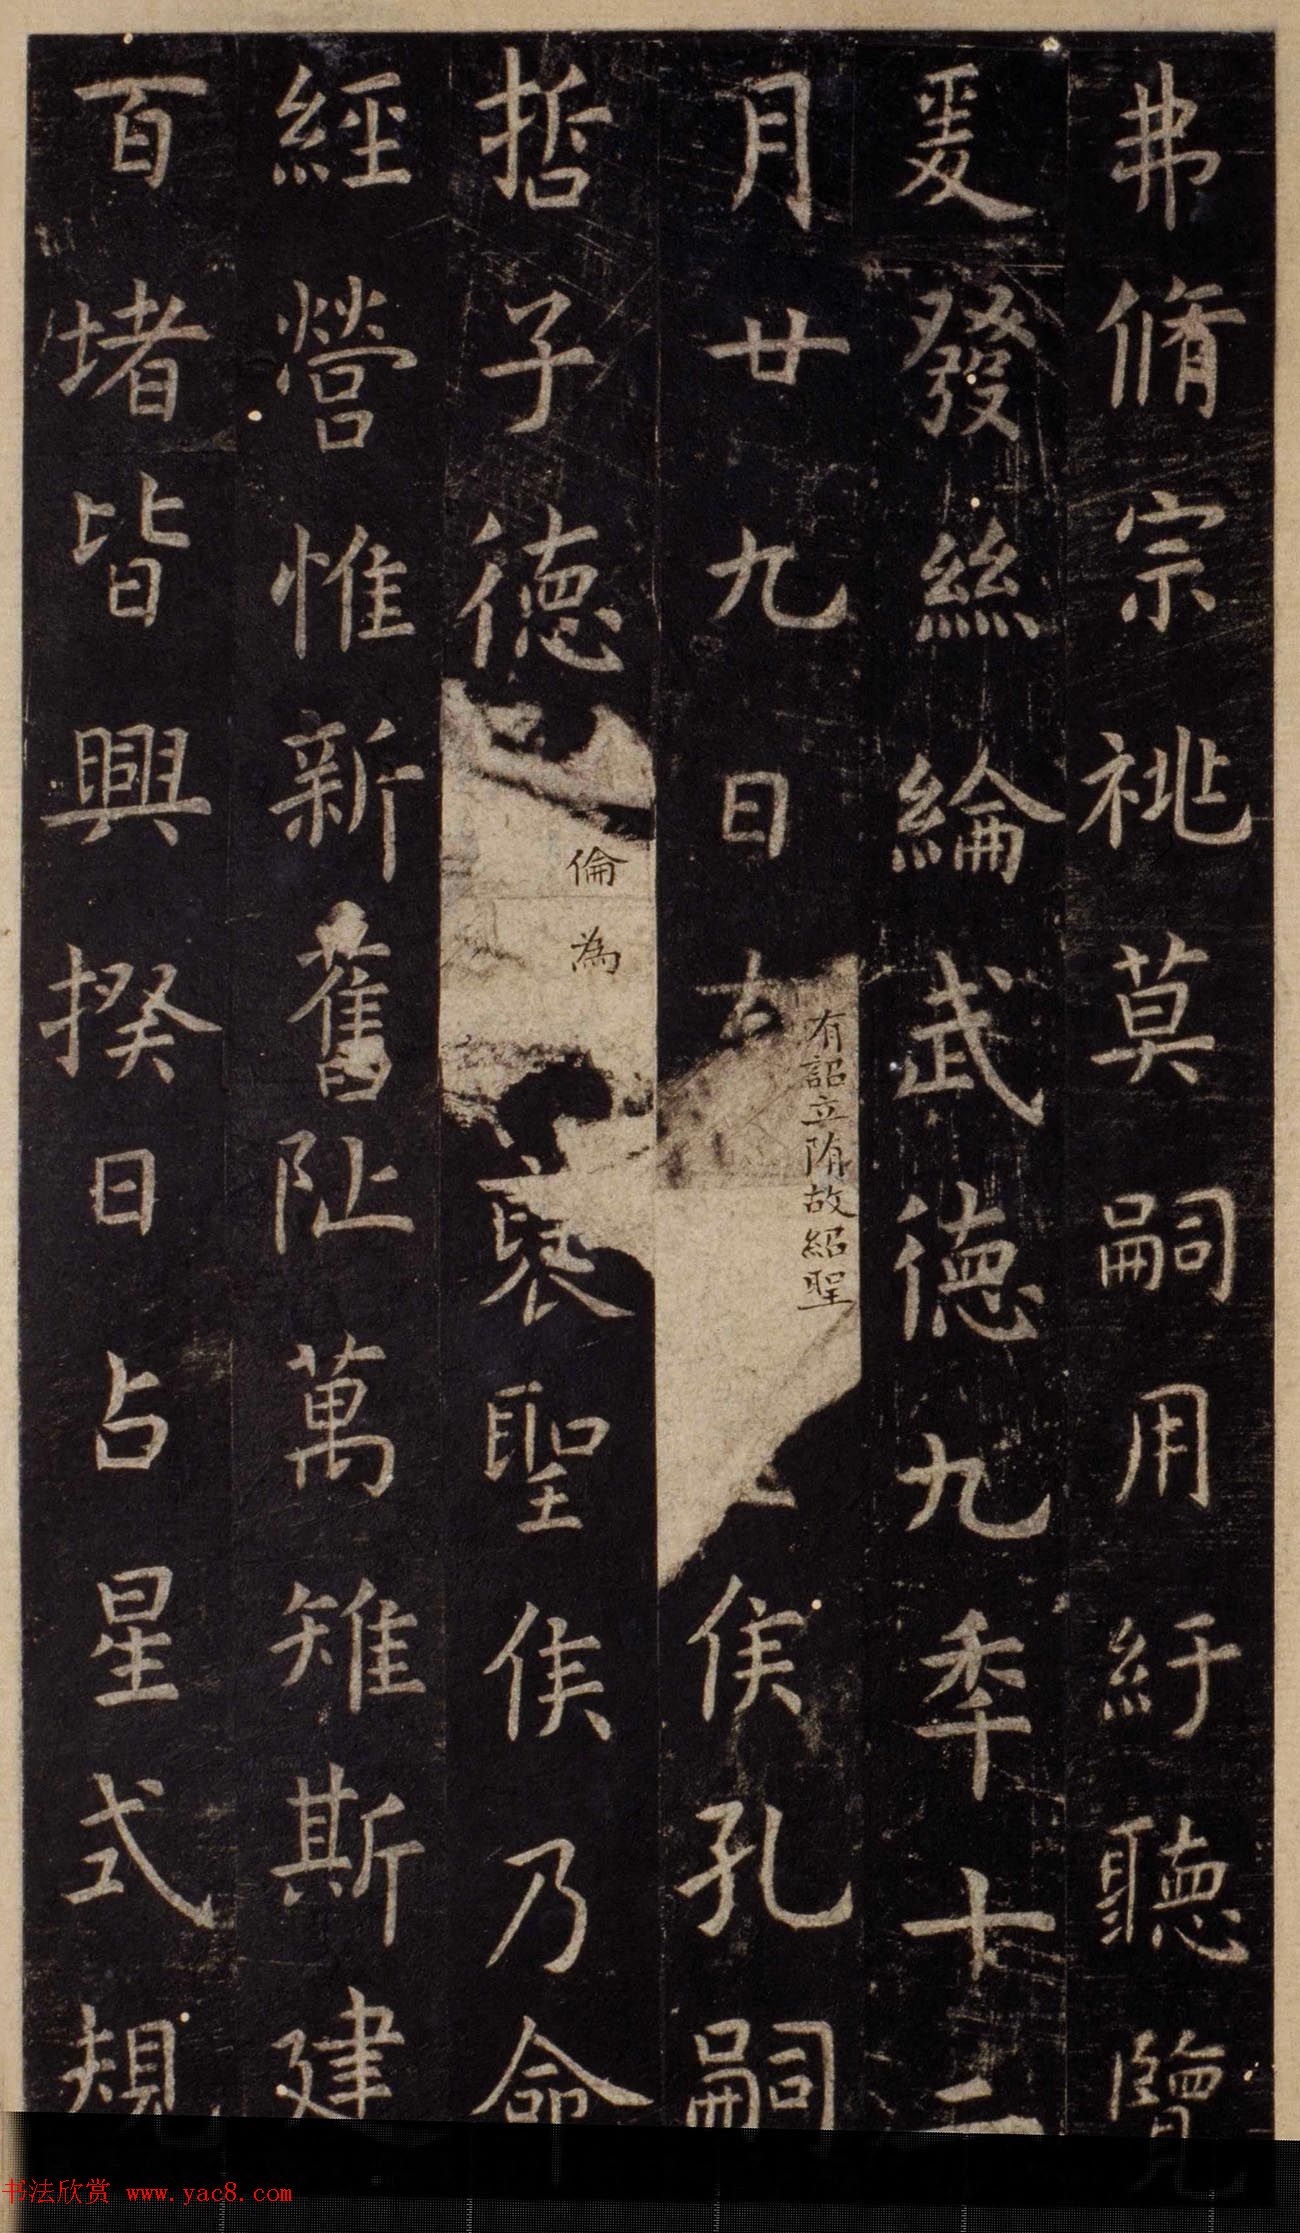 弗脩宗祧莫嗣用紆聽覽
爰發絲綸武德九秊十二
月廿九日有詔立隋故紹聖侯孔嗣
哲子德倫為襃聖侯乃命
經營惟新舊阯萬雉斯建
百堵皆興揆日占星式規
书法欣赏 www.yac8.com